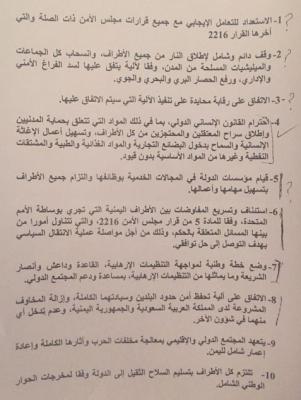 1- الاستعداد للتعامل الإيجابي مع جميع قرارات مجلس الأمن ذات الصلة والتي
آخرها القرار 2216
2- وقف دائم وشامل لإطلاق النار من جميع الأطراف، وانسحاب كل الجماعات
والميليشيات المسلحة من المدن، وفقا لآلية يتفق عليها لسد الفراغ الأمني
والإداري، ورفع الحصار البري والبحري والجوي.
3- الاتفاق على رقابة محايدة على تنفيذ الآلية التي سيتم الاتفاق عليها.
4- احترام القانون الإنساني الدولي، بما في ذلك المواد التي تتعلق بحماية المدنيين
وإطلاق سراح المعتقلين والمحتجزين من كل الأطراف، وتسهيل أعمال الإغاثة
الإنسانية والسماح بدخول البضائع التجارية والمواد الغذائية والطبية والمشتقات
النفطية وغيرها من المواد الأساسية بدون قيود.
5- قيام مؤسسات الدولة في المجالات الخدمية بوظائفها والتزام جميع الأطراف
بتسهيل مهامها وأعمالها.
6- استئناف وتسريع المفاوضات بين الأطراف اليمنية التي تجري بوساطة الأمم
المتحدة، وفقا للمادة 5 من قرار مجلس الأمن 2216، والتي تتناول أمورا من
بينها المسائل المتعلقة بالحكم، وذلك من أجل مواصلة عملية الانتقال السياسي
بهدف التوصل إلى حل توافقي.
7- وضع خطة وطنية لمواجهة التنظيمات الإرهابية، القاعدة وداعش وأنصار
الشريعة وما يماثلها من التنظيمات الإرهابية، بمساعدة ودعم المجتمع الدولي.
8- الاتفاق على آلية تحفظ أمن حدود البلدين وسيادتهما الكاملة، وإزالة المخاوف
المشروعة لدى المملكة العربية السعودية والجمهورية اليمنية، وعدم تدخل أي
منهما في شؤون الآخر.
9- يتعهد المجتمع الدولي والإقليمي بمعالجة مخلفات الحرب وآثارها الكاملة وإعادة
إعمار شامل لليمن.
10- تلتزم كل الأطراف بتسليم السلاح الثقيل إلى الدولة وفقا لمخرجات الحوار
الوطني الشامل.